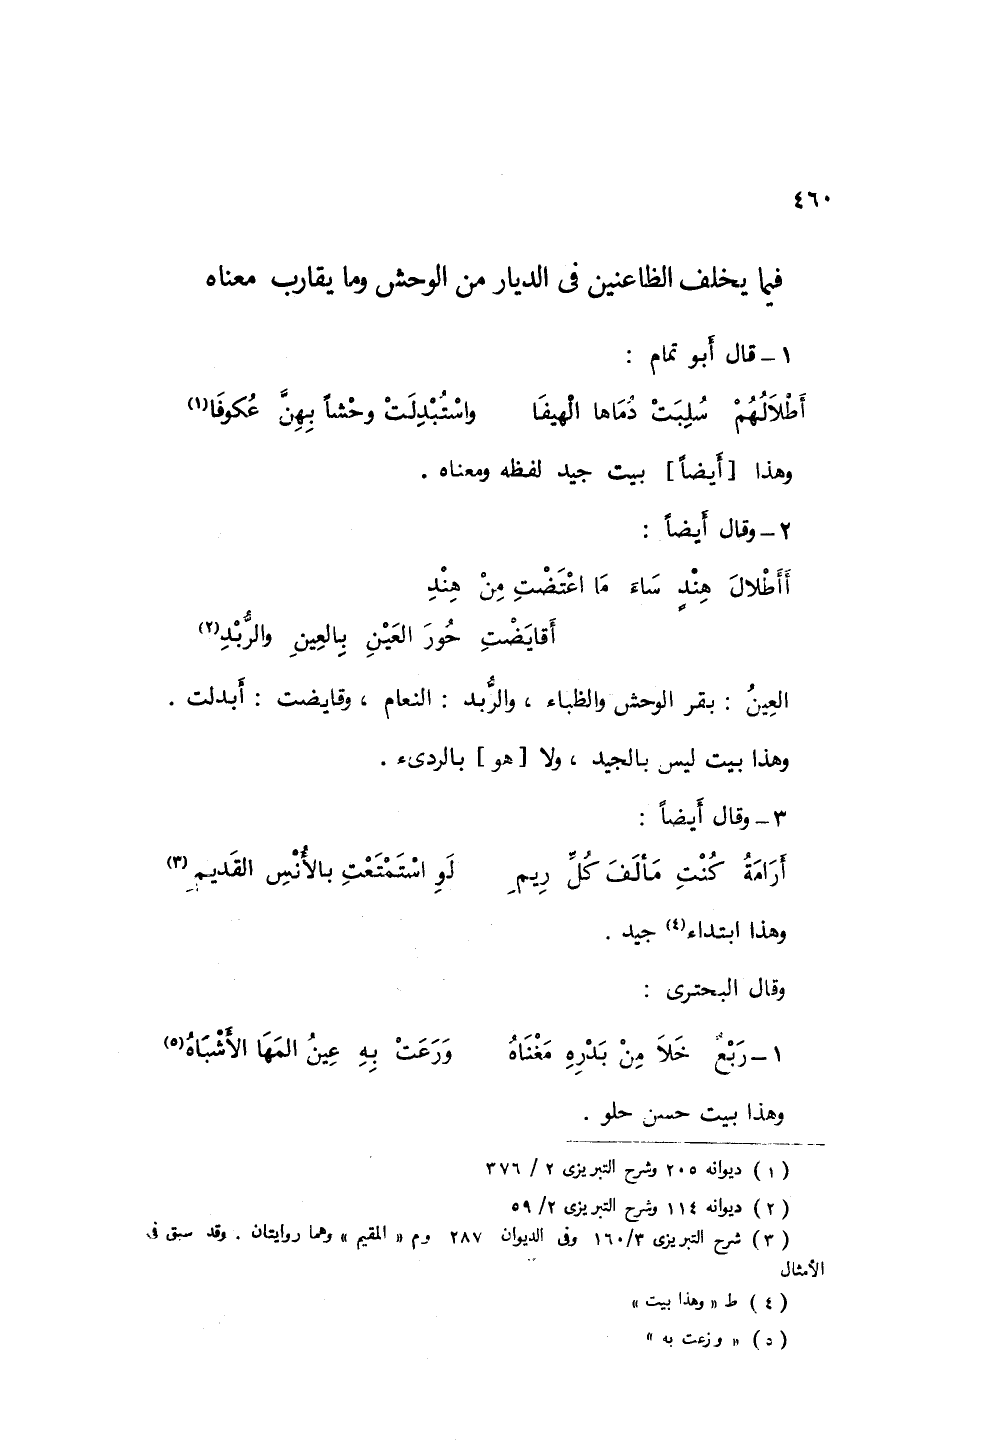 ٤٦٠
فيما يخلف الظاعنين فى الديار من الوحش وما يقارب معناه
١ – قال أَبو تمام :
أَطْلَالُهُمْ سُلِبَتْ دُمَاها الْهيفَا واسْتُبْدِلَتْ وحْشاً بِهِنَّ عُكوفَا(١)
وهذا [ أَيضاً ] بيت جيد لفظه ومعناه .
٢ – وقال أَيضاً :
أَأَطْلالَ هِنْدٍ سَاءَ مَا اعْتَضْتِ مِنْ هِنْدِ
أَقايَضْتِ حُورَ العَيْنِ بِالعِينِ والرُّبْدِ(٢)
العِينُ : بقر الوحش والظباء ، والرُّبد : النعام ، وقايضت : أَبدلت .
وهذا بيت ليس بالجيد ، ولا [ هو ] بالردىء .
٣ – وقال أَيضاً :
أَرَامَةُ كُنْتِ مَألَفَ كُلِّ رِيمِ لَوِ اسْتَمْتَعْتِ بالأُنْسِ القَديمِ (٣)
وهذا ابتداء(٤) جيد .
وقال البحترى :
١ – رَبْعٌ خَلَا مِنْ بَدْرِهِ مَغْنَاهُ وَرَعَتْ بِهِ عِينُ المَهَا الأَشْبَاهُ(٥)
وهذا بيت حسن حلو .
( ١ ) ديوانه ٢٠٥ وشرح التبريزى ٢ / ٣٧٦
( ٢ ) ديوانه ١١٤ وشرح التبريزى ٢/ ٥٩
( ٣ ) شرح التبريزى ١٦٠/٣ وفى الديوان ٢٨٧ وم « المقيم » وهما روايتان . وقد سبق فى
الأمثال
( ٤ ) ط « وهذا بيت »
( ٥ ) « وزعت به »